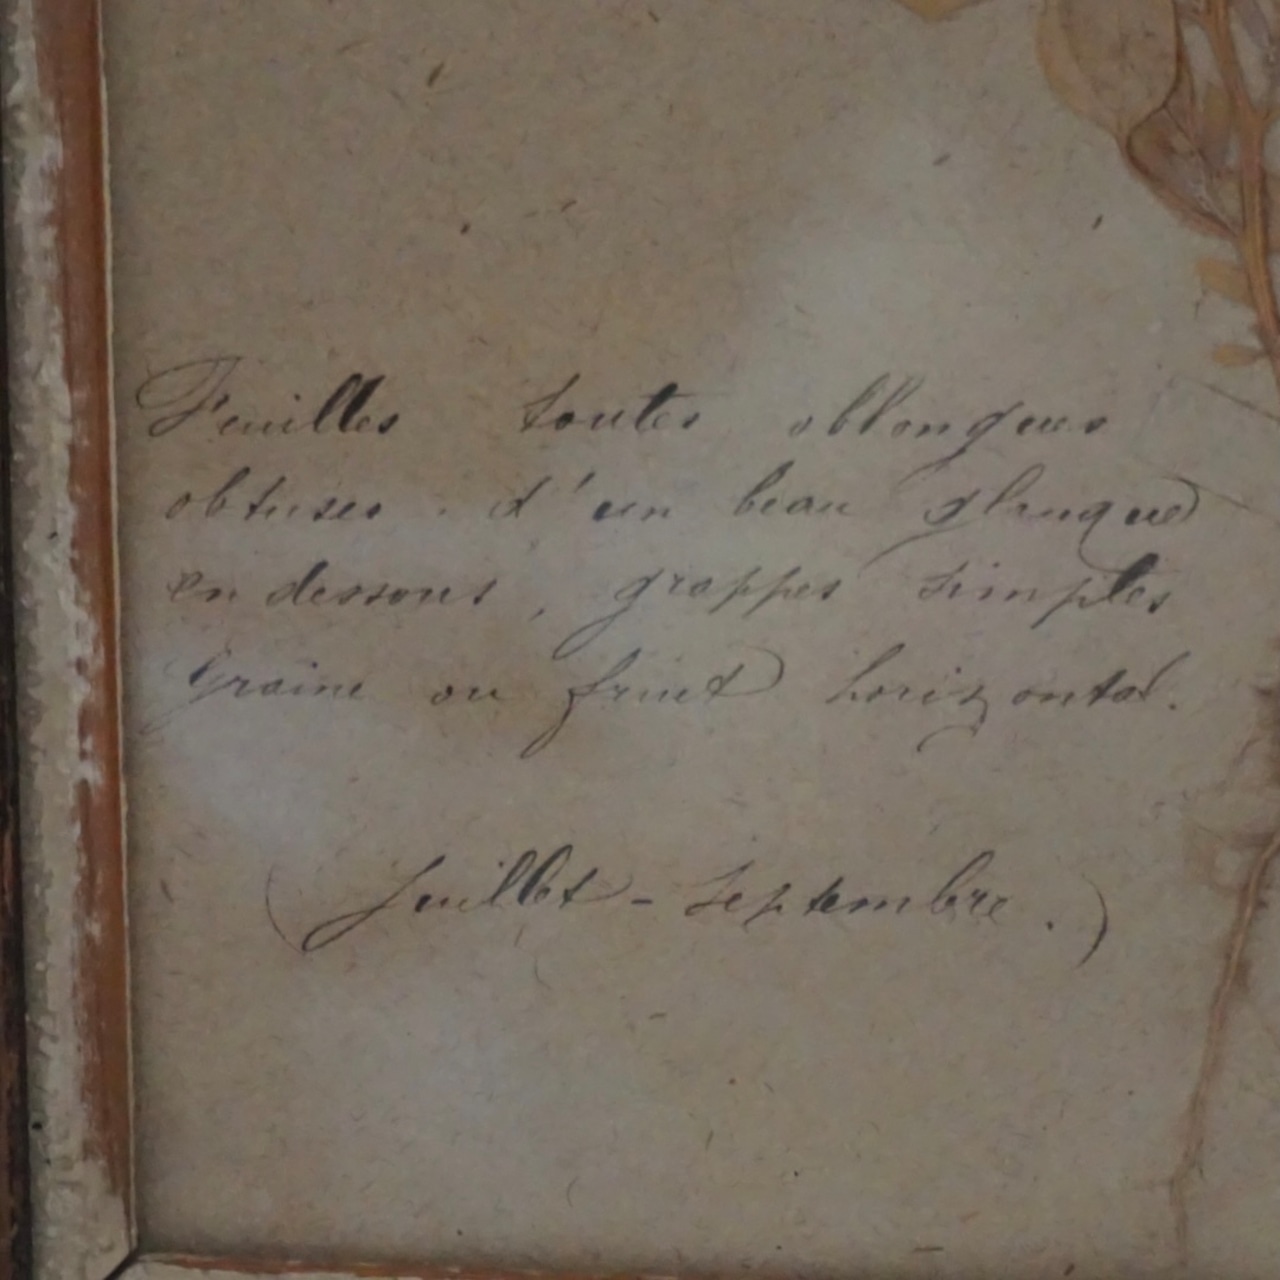 Feuilles toutes obllongues
obtuses. d'un beau glauque
en dessous, grappes simples
Graine ou fruit horizontal.
(Juillet - Septembre.)